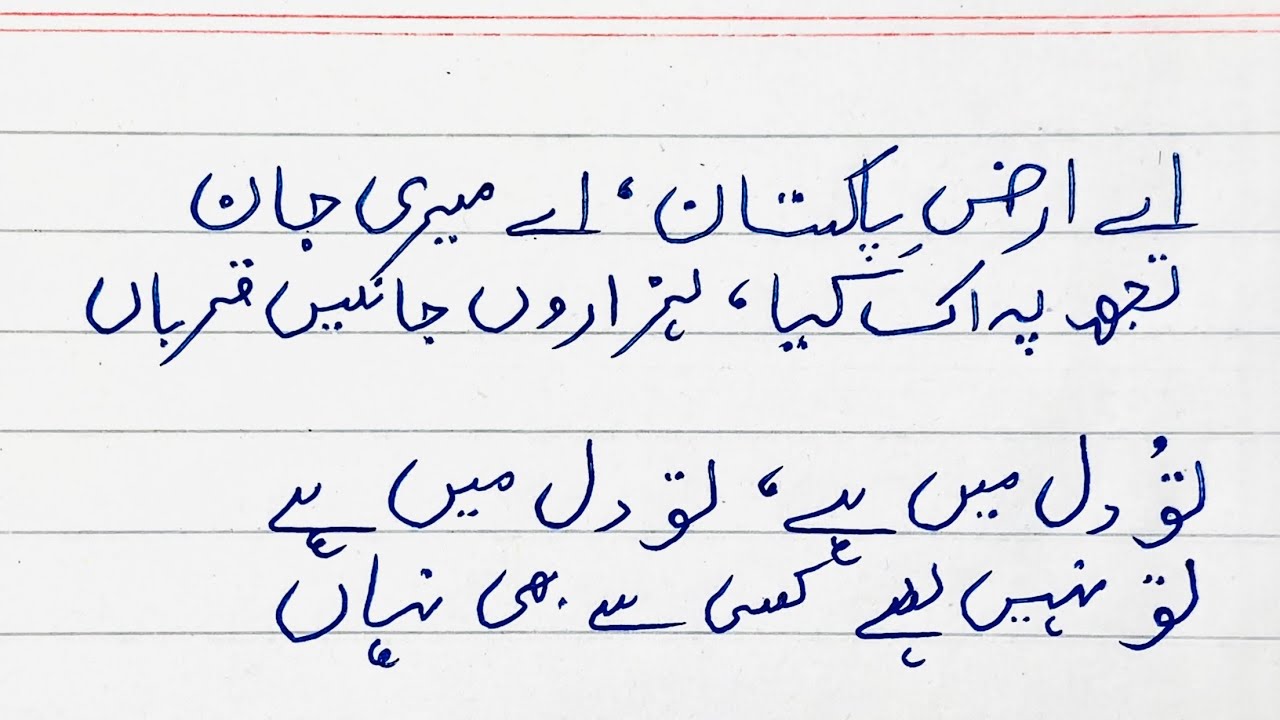 اے ارضِ پاکستان، اے میری جان
تجھ پہ اک کیا، ہزاروں جانیں قرباں
تُو دل میں ہے، تو دل میں ہے
تو نہیں ہے کسی سے بھی نہاں